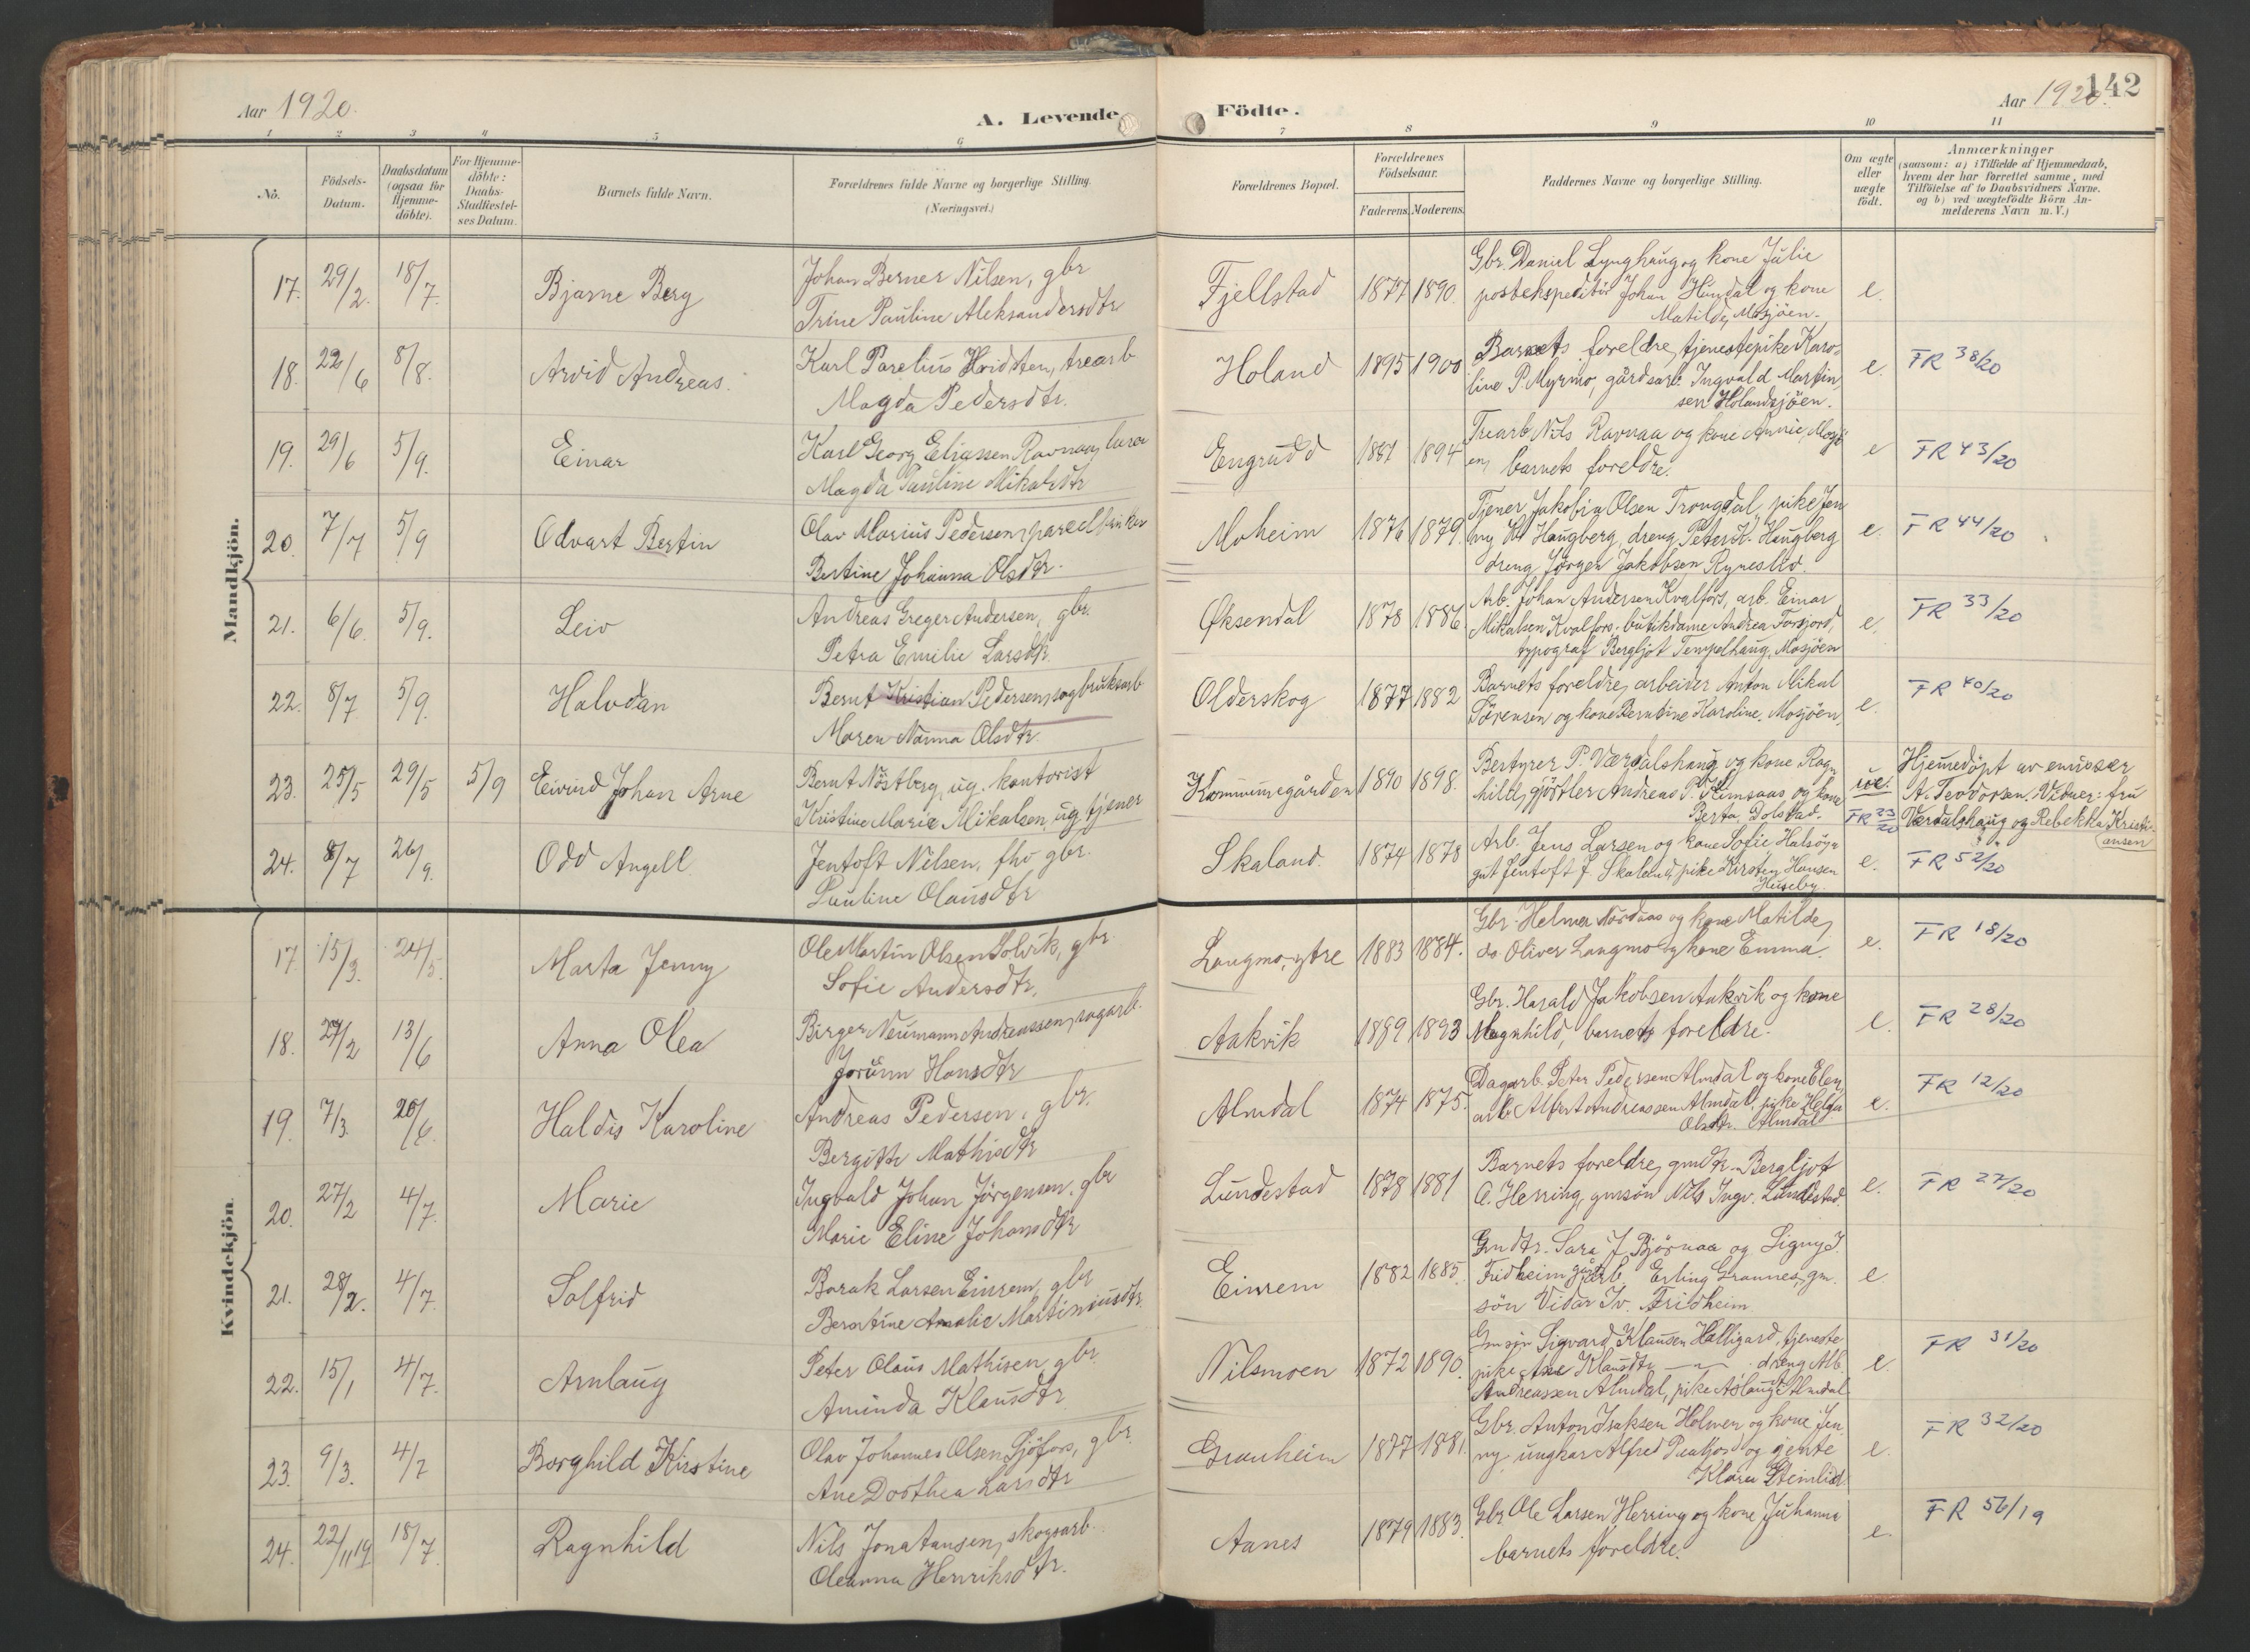 Aar 1920.
A. Levende
Födte.
Aar 1920.
142
1 2 3 4 5 6 7 8 9 10 11
No.
Födsels-
Datum.
Daabsdatum
(ogsaa for
Hjemme-
döbte).
For Hjemme-
döbte:
Daabs-
Stadfæstel-
ses Datum.
Barnets fulde Navn.
Forældrenes fulde Navne og borgerlige Stilling.
(Næringsvei.)
Forældrenes Bopæl.
Forældrenes
Födselsaar.
Faderens. Moderens.
Faddernes Navne og borgerlige Stilling.
Om ægte
eller
uægte
födt.
Anmærkninger
(saasom: a) i Tilfælde af Hjemmedaab,
hvem der har forrettet samme, med
Tilföielse af to Daabsvidners Navne.
og b) ved uægtefödte Börn An-
melderens Navn m. V.)
Mandkjön.
17. 29/2. 18/7. Bjarne Berg
Johan Berner Nilsen, gbr
Trine Pauline Aleksandersdtr
Fjellstad 1877 1890.
Gbr. Daniel Lynghaug og kone Julie
postekspeditör Johan Hundal og kone
Matilde, Mosjöen.
e.
18. 22/6 8/8. Arvid Andreas.
Karl Parelius Hvidsten, trearb
Magda Pedersdtr.
Holand 1895 1900
Barnets foreldre, tjenestepike Karo-
line P. Myrmo, gårdsarb. Ingvald Martin
sen Holandsjöen.
e. FR 38/20
19. 29/6 5/9. Einar
Karl Georg Eliassen Ravnaa, lærer
Magda Pauline Mikalsdtr
Engrudd 1887 1894
Trearb Nils Ravnaa og kone Annie, Mosjö
en, barnets foreldre.
e FR 43/20
20. 7/7 5/9 Edvart Bertin
Olav Marius Pedersen, parcelbruker
Bertine Johanna Olsdtr.
Moheim 1876 1879.
Tjener Jakobia Olsen Trongdal, pike Jen
ny K. Haugberg, dreng Peter K. Haugberg
dreng Jörgen Jakobsen Rynes
e. FR 44/20
21. 6/6. 5/9. Leiv
Andreas Greger Andersen, gbr.
Petra Emilie Larsdtr.
Øksendal 1878 1886
Arb. Johan Andersen Kvalfors, arb. Einar
Mikalsen Kvalfors. butikdame Andrea Forsjord,
typograf Bergljot Tempelhaug, Mosjöen
e. FR 33/20
22. 8/7 5/9. Halvdan
Bernt Kristian Pedersen, sagbruksarb
Maren Nanna Olsdtr.
Olderskog 1877 1882
Barnets foreldre, arbeider Anton Mikal
Sörensen og kone Berntine Karoline, Mosjöen,
e. FR 40/20
23. 25/5 29/5 5/9 Eivind Johan Arne
Bernt Nöstberg, ug. kontorist
Kristine Marie Mikalsen, ug. tjener
Kommunegården 1890 1898.
Bestyrer P. Værdalshaug og kone Ragn
hild, gjörtler Andreas P. og kone
Berta, Dolstad.
ue. FR 23/20
Hjemedöpt av emissær
A. Teodorsen. Vidner: fru
Værdalshaug og Rebekka Kristi-
ansen
24. 8/7 26/9. Odd Angell
Jentoft Nilsen, fhv gbr.
Pauline Olausdtr
Skaland. 1874 1878
Arb. Jens Larsen og kone Sofie Halsöy,
gut Jentoft J. Skaland, pike Kirsten Hansen
Huseby.
e. FR 52/20
Kvindekjön
17. 15/3. 24/5. Marta Jenny
Ole Martin Olsen Solvik, gbr
Sofie Andersdtr.
Langmo, ytre 1883 1884.
Gbr. Helmer Nordaas og kone Matilde,
do. Oliver Langmo og kone Emma.
e. FR 18/20
18. 27/2 13/6 Anna Olea
Birger Neumann Andreassen, sagarb.
Jorunn Hansdtr
Aakvik 1889 1893
Gbr. Harald Jakobsen Aakvik og kone
Magnhild, barnets foreldre.
e. FR 28/20
19. 7/3. 20/6. Haldis Karoline
Andreas Pedersen, gbr.
Bergitte Mathisdtr
Almdal 1874 1875.
Dagarb. Peter Pedersen Almdal og kone Elen,
arb. Albert Andreassen Almdal, pike Helga
Olsdtr. Almdal
e. FR 12/20
20. 27/2 4/7. Marie
Ingvald Johan Jörgensen, gbr
Marie Eline Johansdtr
Lundestad 1878 1881
Barnets foreldre, gmdtr. Bergljot
O. Herring, gmsön Nils Ingv. Lundestad.
e. FR 27/20
21. 28/2. 4/7. Solfrid
Barak Larsen Einrem, gbr
Berntine Amalie Martiniusdtr.
Einrem 1882 1885.
Gmdtr. Sara J. Björnaa og Signy J.
Fridheim gårdarb. Erling Grannes, gm.
sön Vidar Iv. Fridheim.
e.
22. 15/1 4/7. Arnlaug
Peter Olaus Mathisen, gbr.
Aminda Klausdtr.
Nilsmoen 1872 1890.
Gmsön Sigvard Klausen Halligard, tjeneste
pike Ane Klausdtr. — " — dreng Alb.
Andreassen Almdal, pike Aslaug Almdal
e. FR 31/20
23. 9/3. 4/7 Borghild Kirstine
Olav Johannes Olsen Sjöfors, gbr.
Ane Dorthea Larsdtr
Granheim 1877 1881.
Gbr. Anton Isaksen Holmen og kone Jen
ny, ungkar Alfred og gjente
Klara Steinlid
e. FR 32/20
24. 22/11 19 18/7. Ragnhild
Nils Jonatansen, skogsarb.
Oleanna Henriksdtr.
Aanes 1879 1883.
Gbr Ole Larsen Herring og kone Juhanna
barnets foreldre.
e. FR 56/19